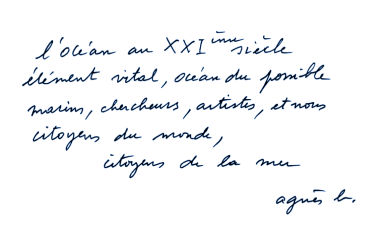 l'océan au XXIème siècle
élément vital, océan du possible
marins, chercheurs, artistes, et nous
citoyens du monde,
citoyens de la mer
agnès b.